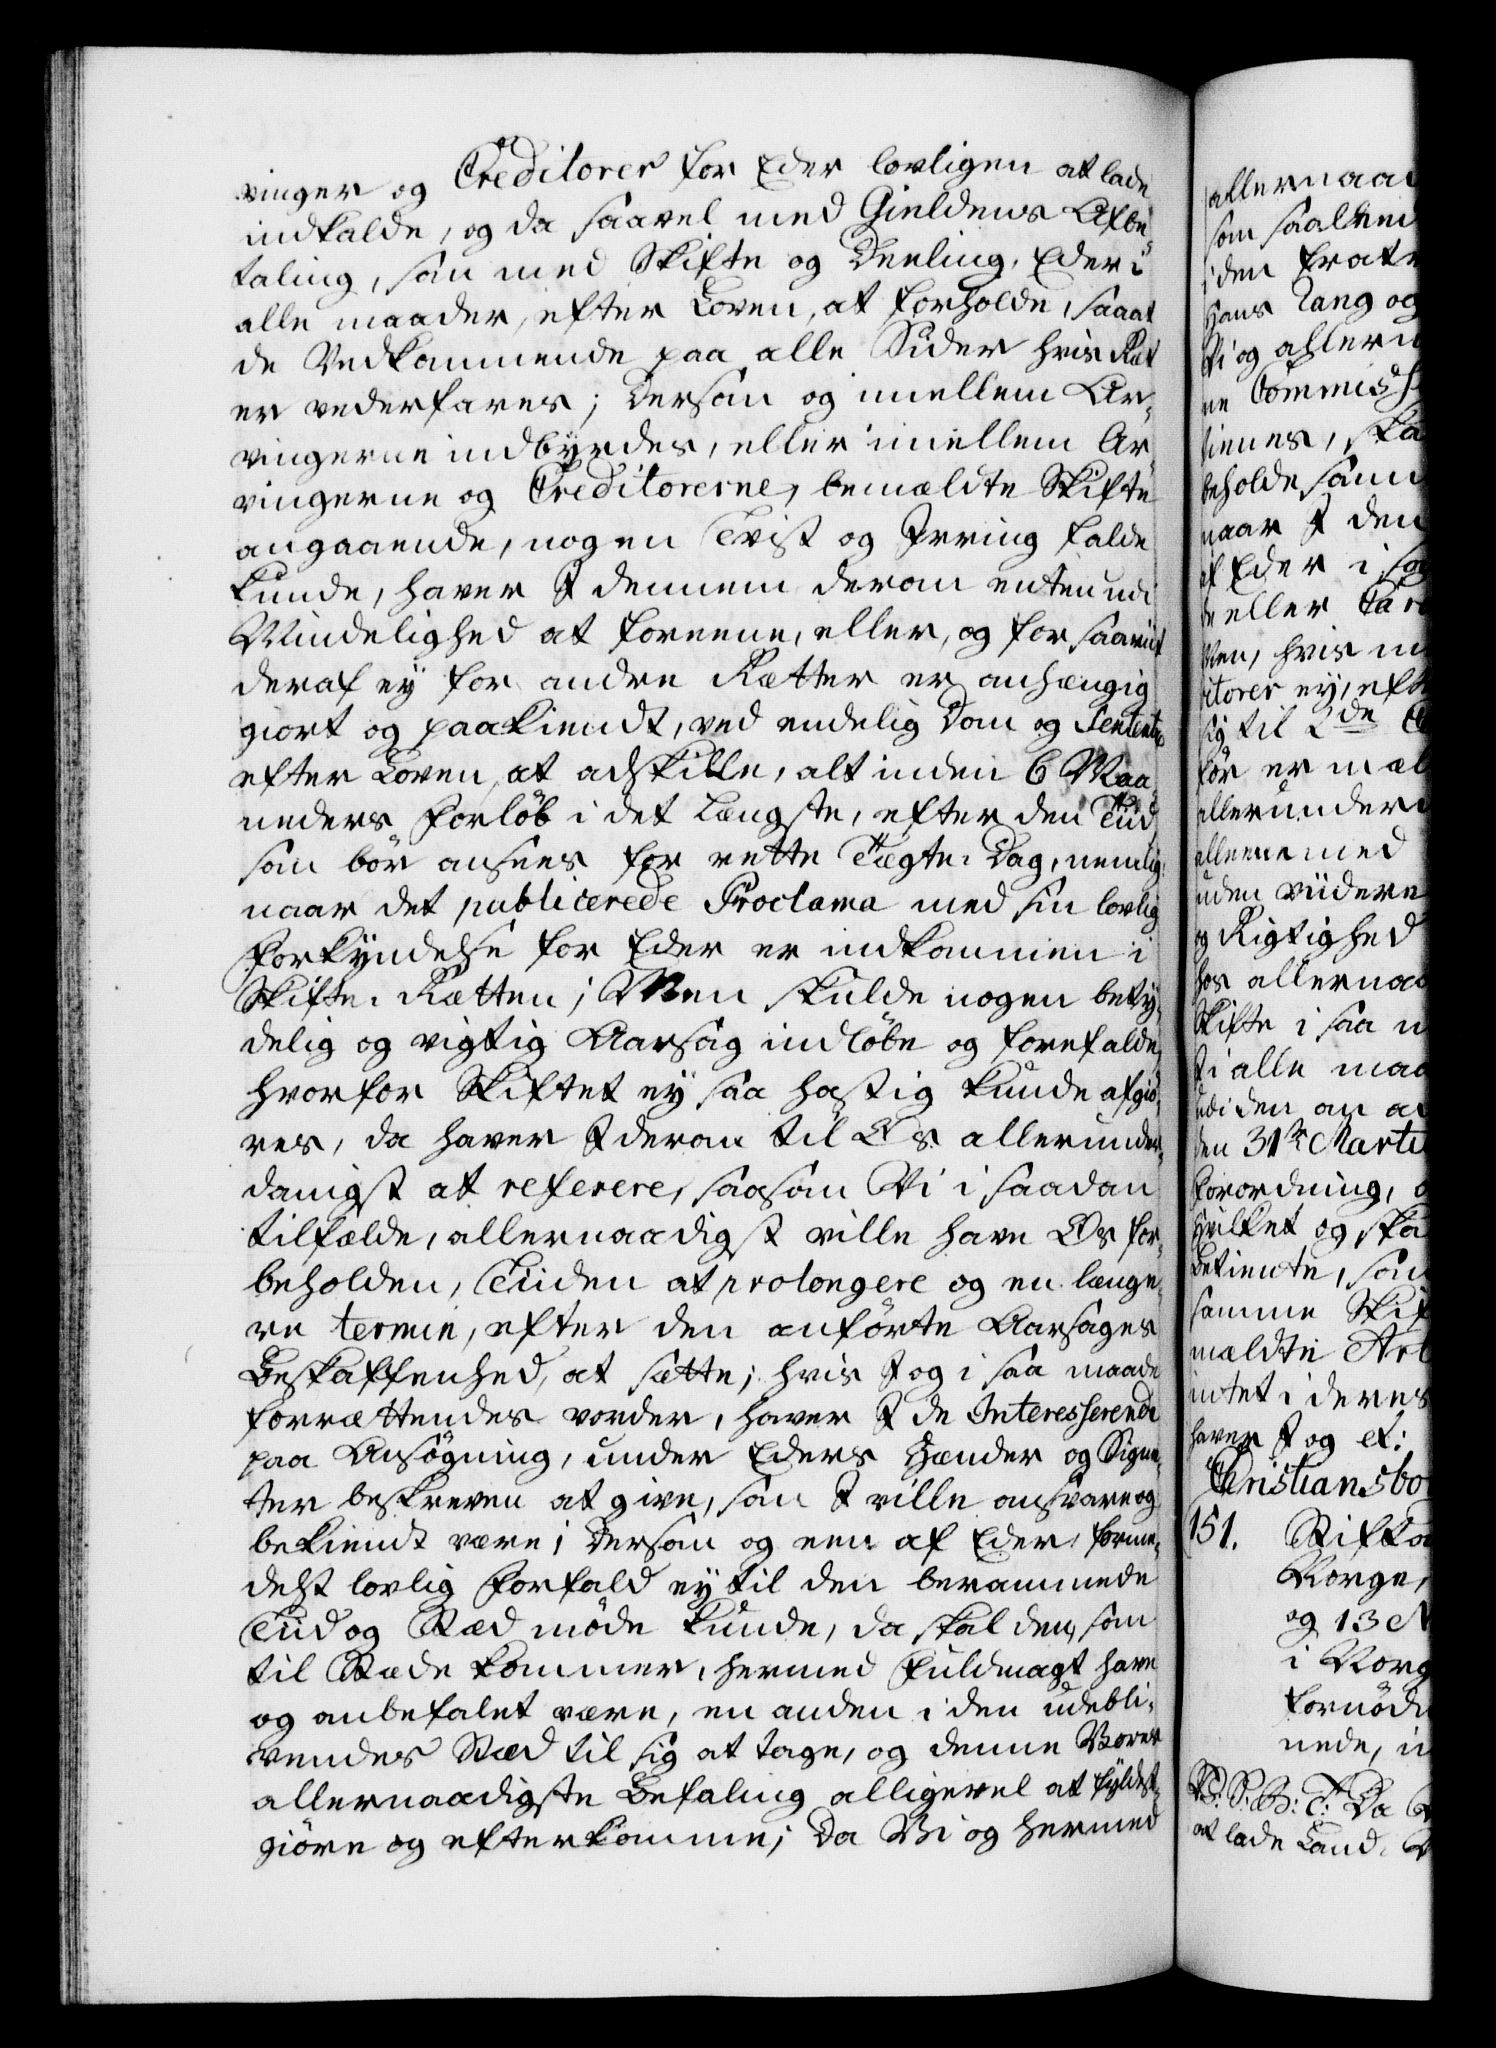 vinger og Creditorer for Eder lovligen at lade
indkalde, og da saavel med Gieldens Afbe-
taling, som med Skifte og Deeling, Eder i
alle maader, efter Loven, at forholde, saa at
de Vedkommende paa alle Sider hvis Ræt
er vederfares; Dersom og imellem Ar-
vingerne indbyrdes, eller imellem Ar-
vingerne og Creditorerne, bemældte Skifte
angaaende, nogen Tvist og Irring falde
kunde, haver I dennem derom enten udi
Mindelighed at foreene, eller, og for saavit
deraf ey for andre Rætter er anhængig
giort og paakiendt, ved endelig Dom og Sententz
efter Loven, at adskille, alt inden 6 Maa-
neders Forløb i det Længste, efter den Tiid
som bør ansees for rette Tægte-Dag, nemlig:
naar det publicerede Proclama med sin lovlig
Forkyndelse for Eder er indkommen i
Skifte-Rætten; Men skulde nogen bety-
delig og vigtig Aarsag indløbe og forefalde,
hvorfor Skiftet ey saa hastig kunde afgiø-
res, da haver I derom til Os allerunder-
danigst at referere, saasom Vi i saadan
tilfælde, allernaadigst ville have Os for-
beholden, Tiiden at prolongere og en længe-
re termin, efter den anførte Aarsages
Beskaffenhed, at sætte; hvis I og i saa maade
forrættendes vorder, haver I de Interesserende
paa Ansøgning, under Eders Hænder og Signe-
ter beskreven at give, som I ville ansvare og
bekiendt være; Dersom og een af Eder, forme-
delst lovlig Forfald ey til den berammede
Tiid og Stæd møde kunde, da skal den, som
til Stæde kommer, hermed Fuldmagt have
og anbefalet være, en anden i den udebli-
vendes Stæd til sig at tage, og denne Vores
allernaadigste Befaling alligevel at fyldest-
giøre og efterkomme; Da Vi og hermed
allernaad
som saaled
i den
Hans Rang og
Vi og allern
ne Commiss
tienes, ska
beholde sam
naar I den
af Eder i
eller
Men, hvis
itorer ey, eft
sig til 2de
før ermæl
allerunder
alleene med
uden viidere
og Rigtighed
hos allernaa
Skifte i saa
i alle maa
udi den
den 31te Martii
Forordning,
Hvilket og ska
Betiente, som
samme Skif
mældte
intet i deres
haver I og et:
Christiansbo
151. Stifta
Norge,
og 13
i Norg
fornød
nede,
Da
at lade Land-